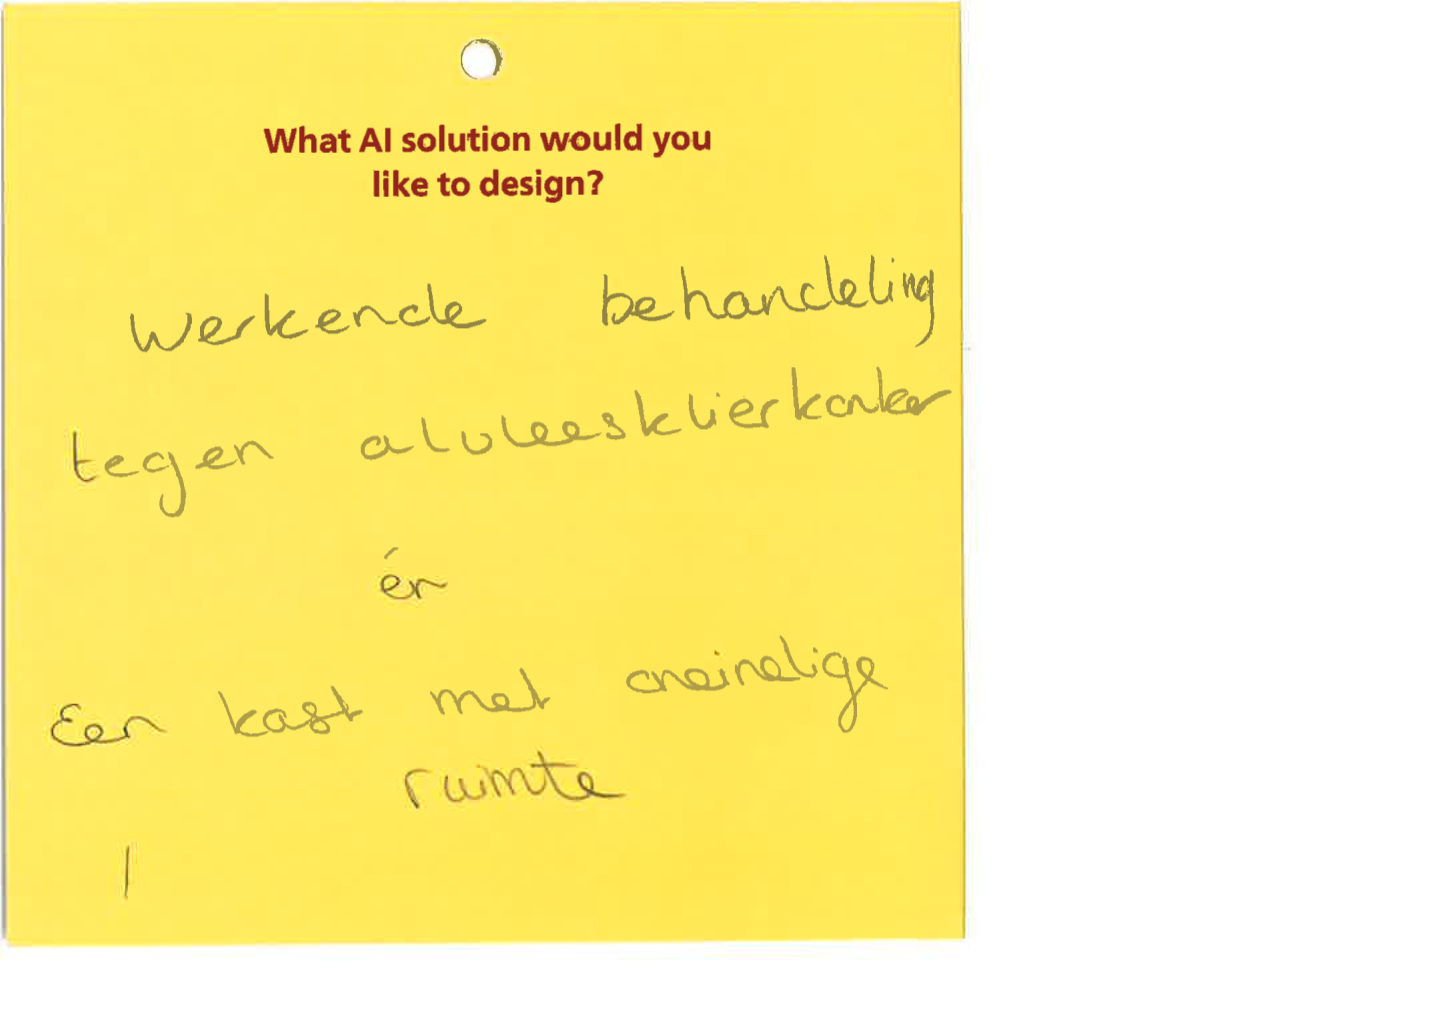 What AI solution would you
like to design?
Werkende behandeling
tegen alvleesklierkanker
én
Een kast met oneindige
ruimte